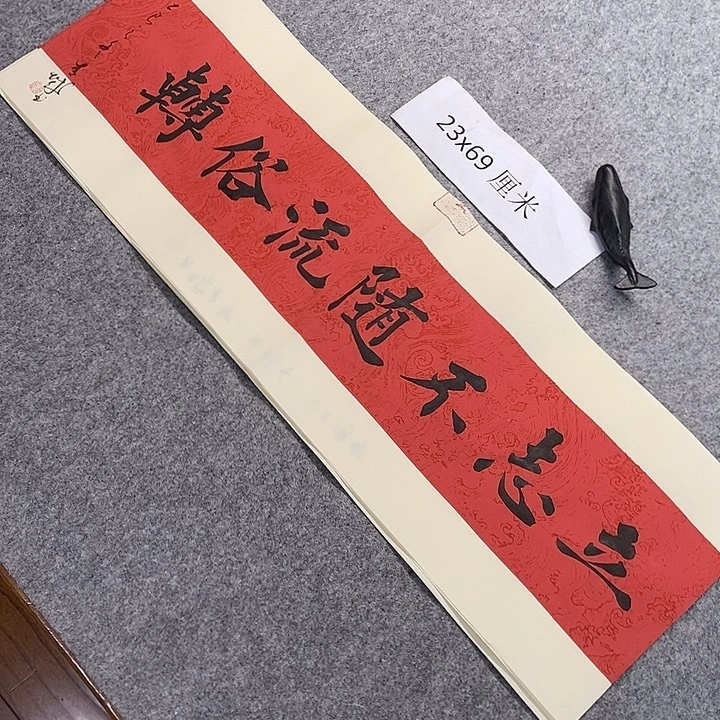 立志不随流俗轉
23x69 厘米